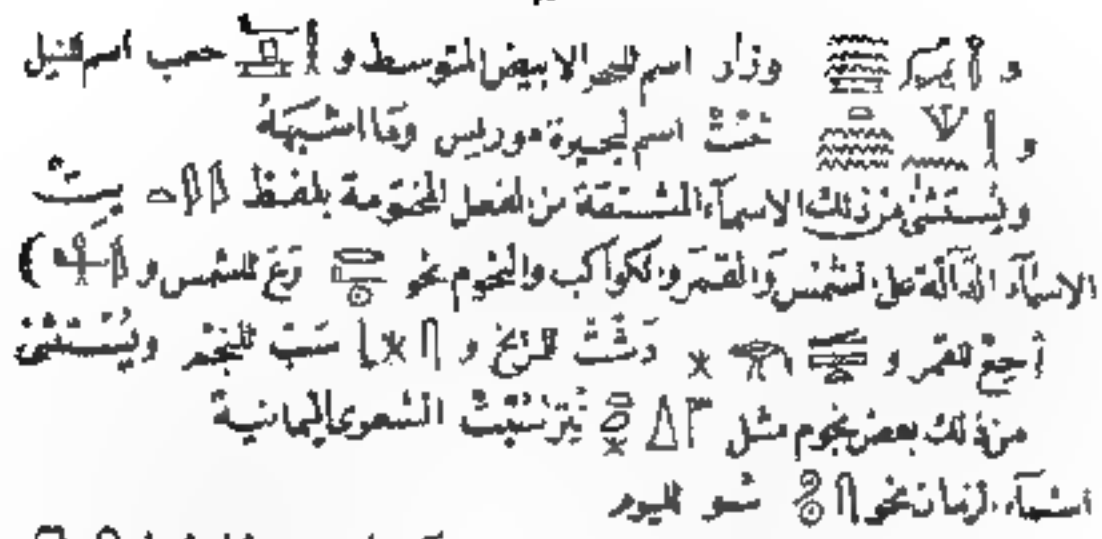 و وزار اسم للبحر الابيض المتوسط و حعب اسم للنيل
و خنت اسم لبحيرة موريس وما اشبهه
ويستثنى من ذلك الاسماء المشتقة من الفعل المختومة بلفظ يت
الاسماء الدالة على الشمس والقمر والكواكب والنجوم نحو رع للشمس و (
أحع للقمر و دشت للمريخ و سب للنجم ويستثنى
من ذلك بعض نجوم مثل الشعرى اليمانية
اسماء الزمان نحو شو لليوم